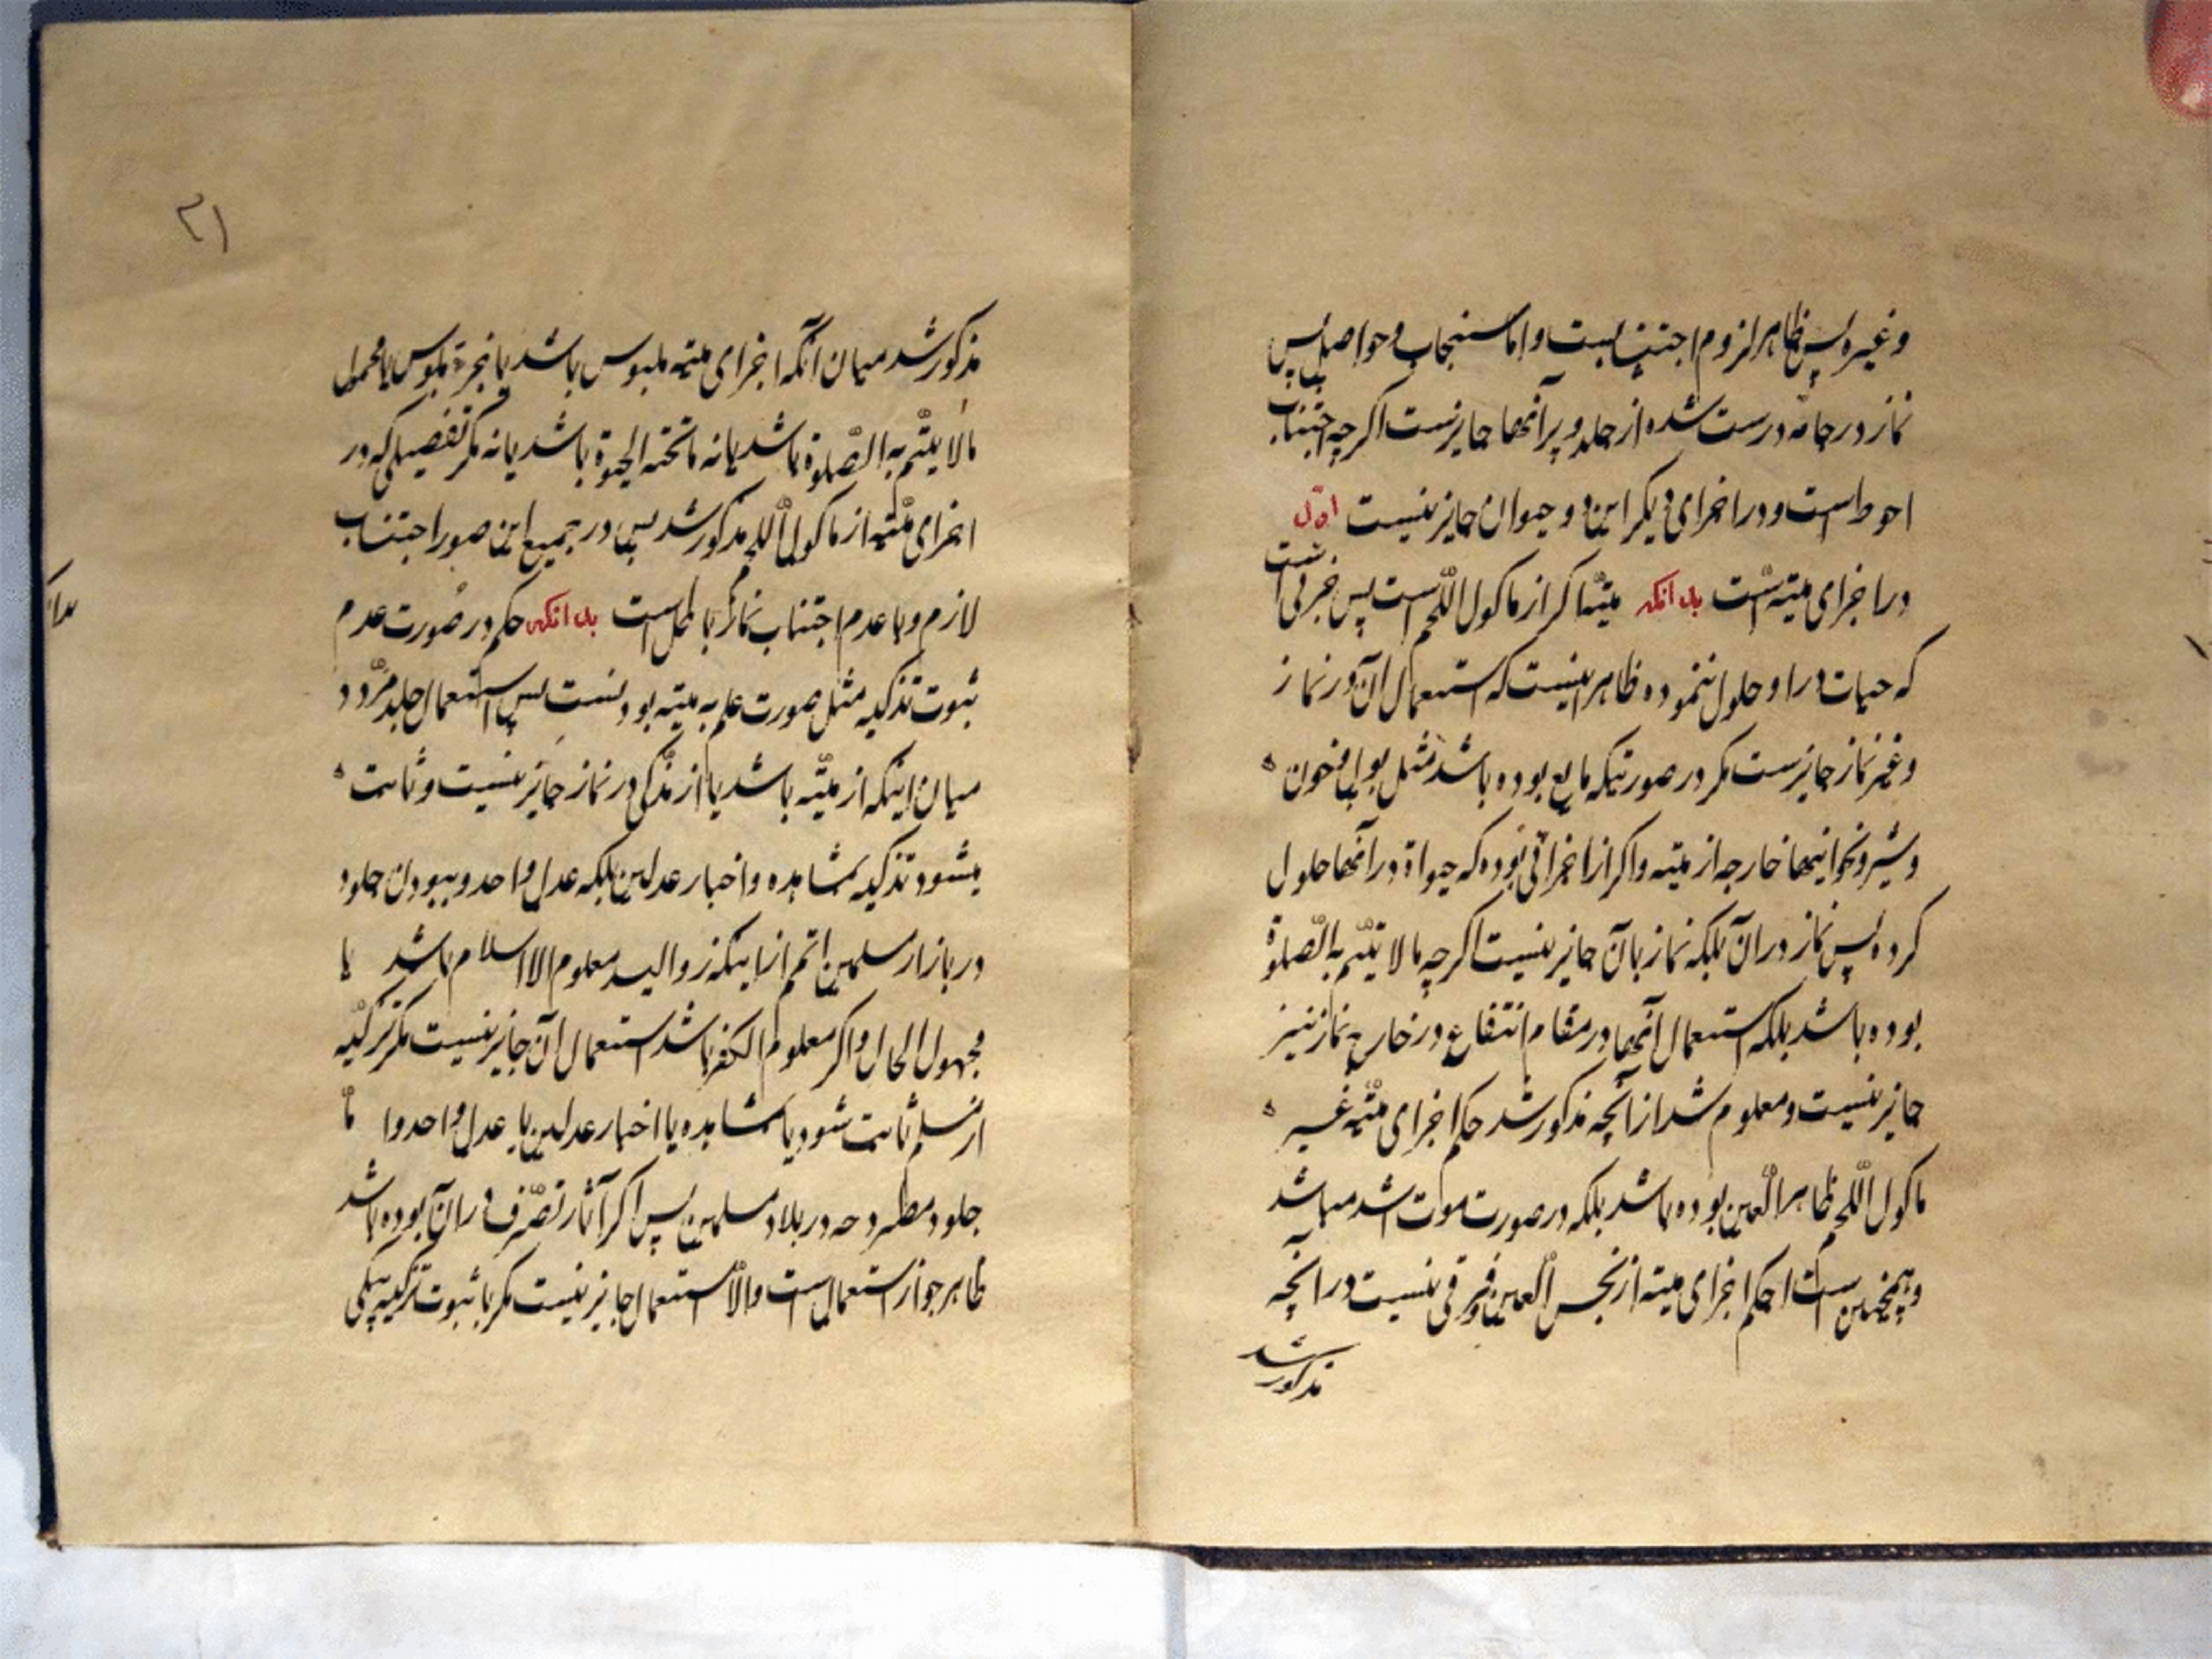 وغیره پس ظاهر لزوم اجتنابست واما سنجاب وحواصل پس
نماز در جامهٔ درست شده از جلد و پر آنها جایزست اگرچه اجتناب
احوط است ودر اجزای دیگر این دو حیوان جایز نیست اوّل
در اجزای میته است بدانکه میته اگر از ماکول اللّحم است پس جزئی است
که حیات در او حلول ننموده ظاهر اینست که استعمال آن در نماز
وغیر نماز جایزست مگر در صورتیکه مایع بوده باشد مثل بول وخون
وشیر ونحو اینها خارجه از میته واگر از اجزائی بوده که حیواة در آنها حلول
کرده پس نماز در آن بلکه نماز بآن جایز نیست اگرچه مالا یتمّ به الصّلوة
بوده باشد بلکه استعمال آنها در مقام انتفاع در خارج نماز نیز
جایز نیست ومعلوم شد از آنچه مذکور شد حکم اجزای میّته غیر
ماکول اللّحم ظاهر العین بوده باشد بلکه در صورت موت اشد میباشد
وهمچنین است حکم اجزای میته از نجس العین وفرقی نیست در آنچه
مذکور شد
۲۱
مذکور شد میان آنکه اجزای میته ملبوس باشد یا نجزء ملبوس یا محمول
مالا یتمّ به الصّلوة باشد یا نه ماتحته الحیوة باشد یا نه مگر تفصیلی که در
اجزای میّته از ماکول اللحم مذکور شد پس در جمیع این صور اجتناب
لازم وبا عدم اجتناب نماز باطل است بدانکه حکم در صورت عدم
ثبوت تذکیه مثل صورت علم به میته بودنست پس استعمال جلد مردّد
میان اینکه از میّته باشد یا از مذکی در نماز جایز نیست وثابت
میشود تذکیه بمشاهده واخبار عدلین بلکه عدل واحد وببودن جلود
در بازار مسلمین اعم از اینکه ذو الید معلوم الاسلام باشد یا
مجهول الحال واگر معلوم الکفر باشد استعمال آن جایز نیست مگر تزکیه
از مسلم ثابت شود یا بمشاهده یا اخبار عدلین یا عدل واحد وامّا
جلود مطروحه در بلاد مسلمین پس اگر آثار تصّرف در آن بوده باشد
ظاهر جواز استعمال است والّا استعمال جایز نیست مگر با ثبوت تزکیه بیکی